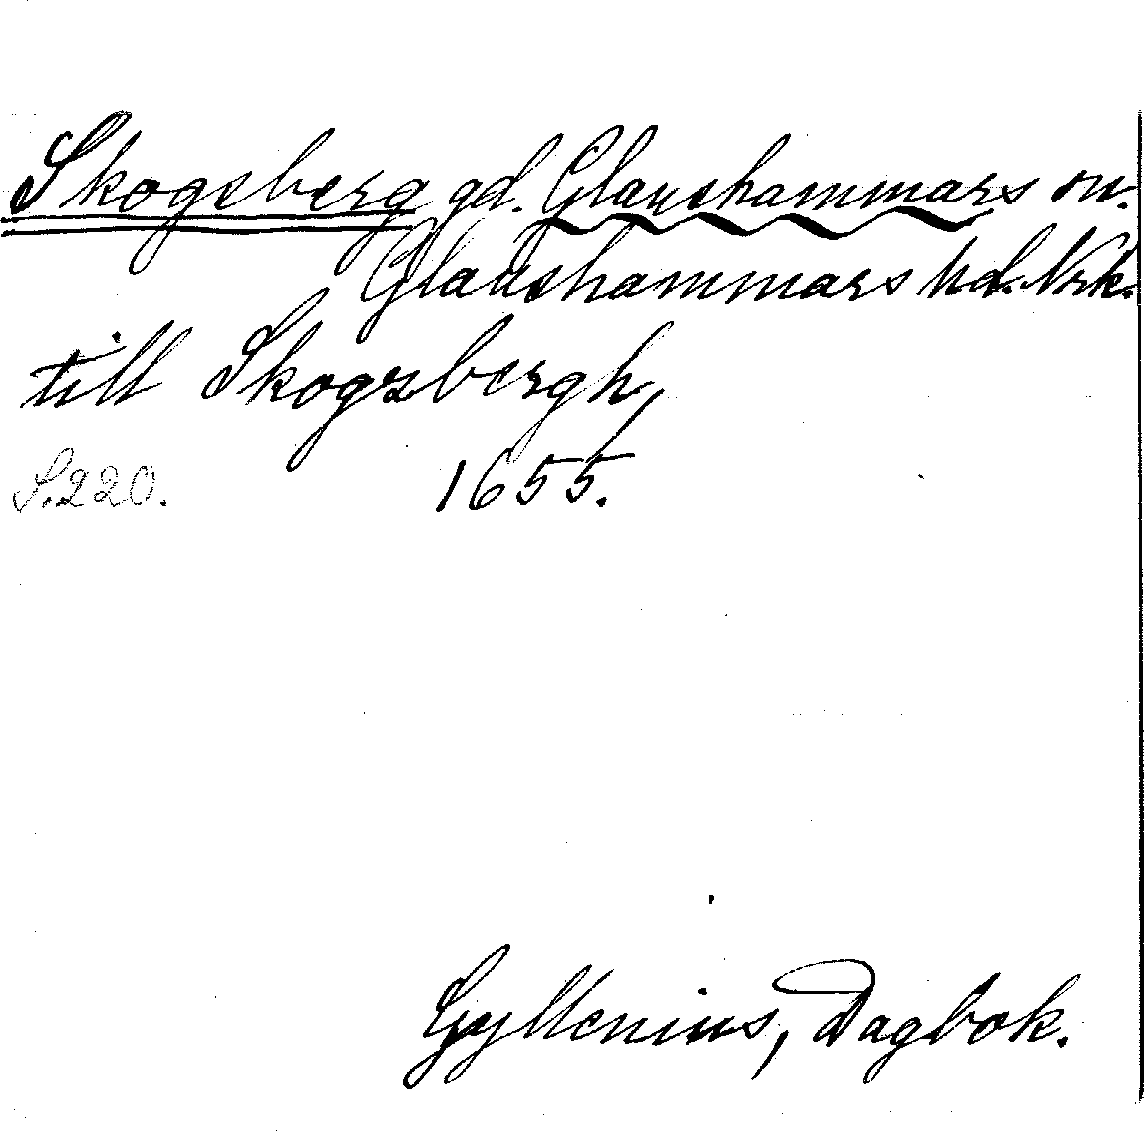 Skogsberg gd. Glanshammars sn.
Glanshammars hd. Nrk.
till Skogzbergh,
S. 220. 1655.
Gyllenius, Dagbok.